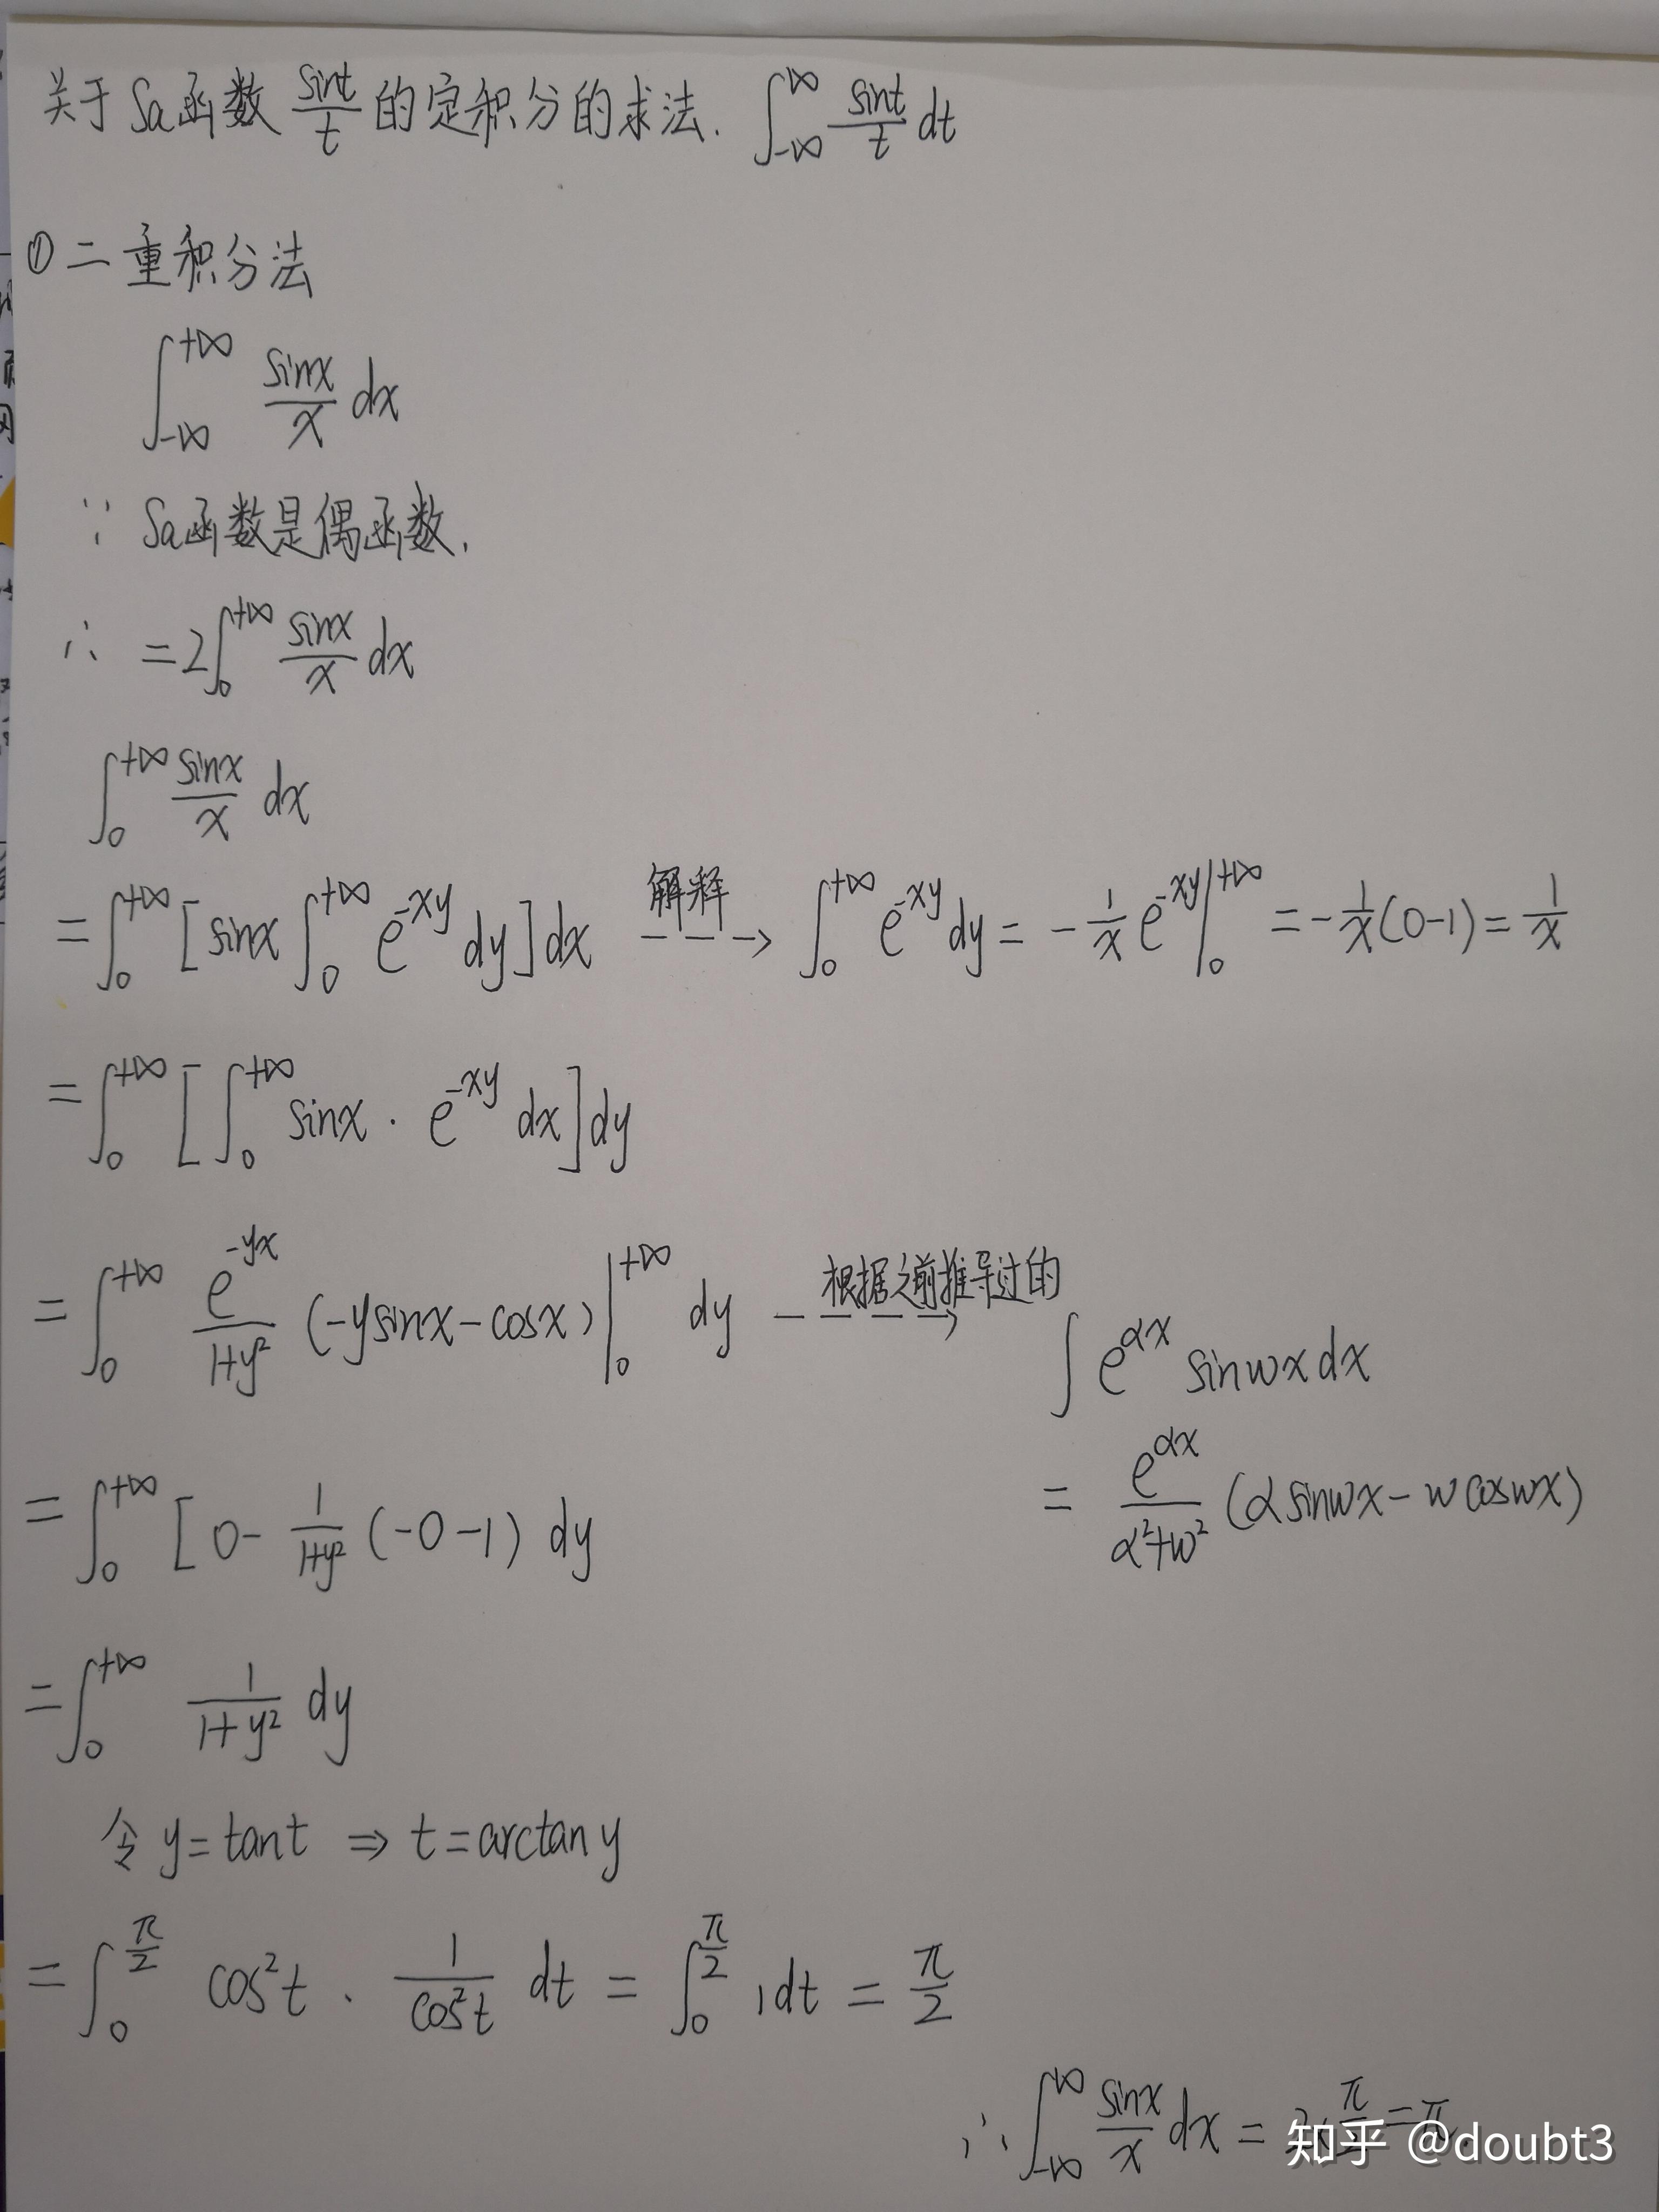 关于Sa函数 sint/t 的定积分的求法. ∫_{-∞}^{+∞} sint/t dt
① 二重积分法
∫_{-∞}^{+∞} sinx/x dx
∵ Sa函数是偶函数.
∴ =2∫_0^{+∞} sinx/x dx
∫_0^{+∞} sinx/x dx
=∫_0^{+∞} [sinx ∫_0^{+∞} e^{-xy} dy]dx 解释 ---> ∫_0^{+∞} e^{-xy} dy = -1/x e^{-xy}|_0^{+∞} = -1/x(0-1) = 1/x
=∫_0^{+∞} [∫_0^{+∞} sinx · e^{-xy} dx]dy
=∫_0^{+∞} e^{-yx}/(1+y²) (-ysinx-cosx)|_0^{+∞} dy ----> 根据之前推导过的
∫e^{αx} sinwx dx
= e^{αx}/(α²+w²) (αsinwx-wcoswx)
=∫_0^{+∞} [0- 1/(1+y²) (-0-1) dy
=∫_0^{+∞} 1/(1+y²) dy
令 y=tant ⇒ t=arctany
=∫_0^{π/2} cos²t · 1/cos²t dt = ∫_0^{π/2} 1dt = π/2
∴ ∫_{-∞}^{+∞} sinx/x dx = 2×π/2=π
知乎 @doubt3